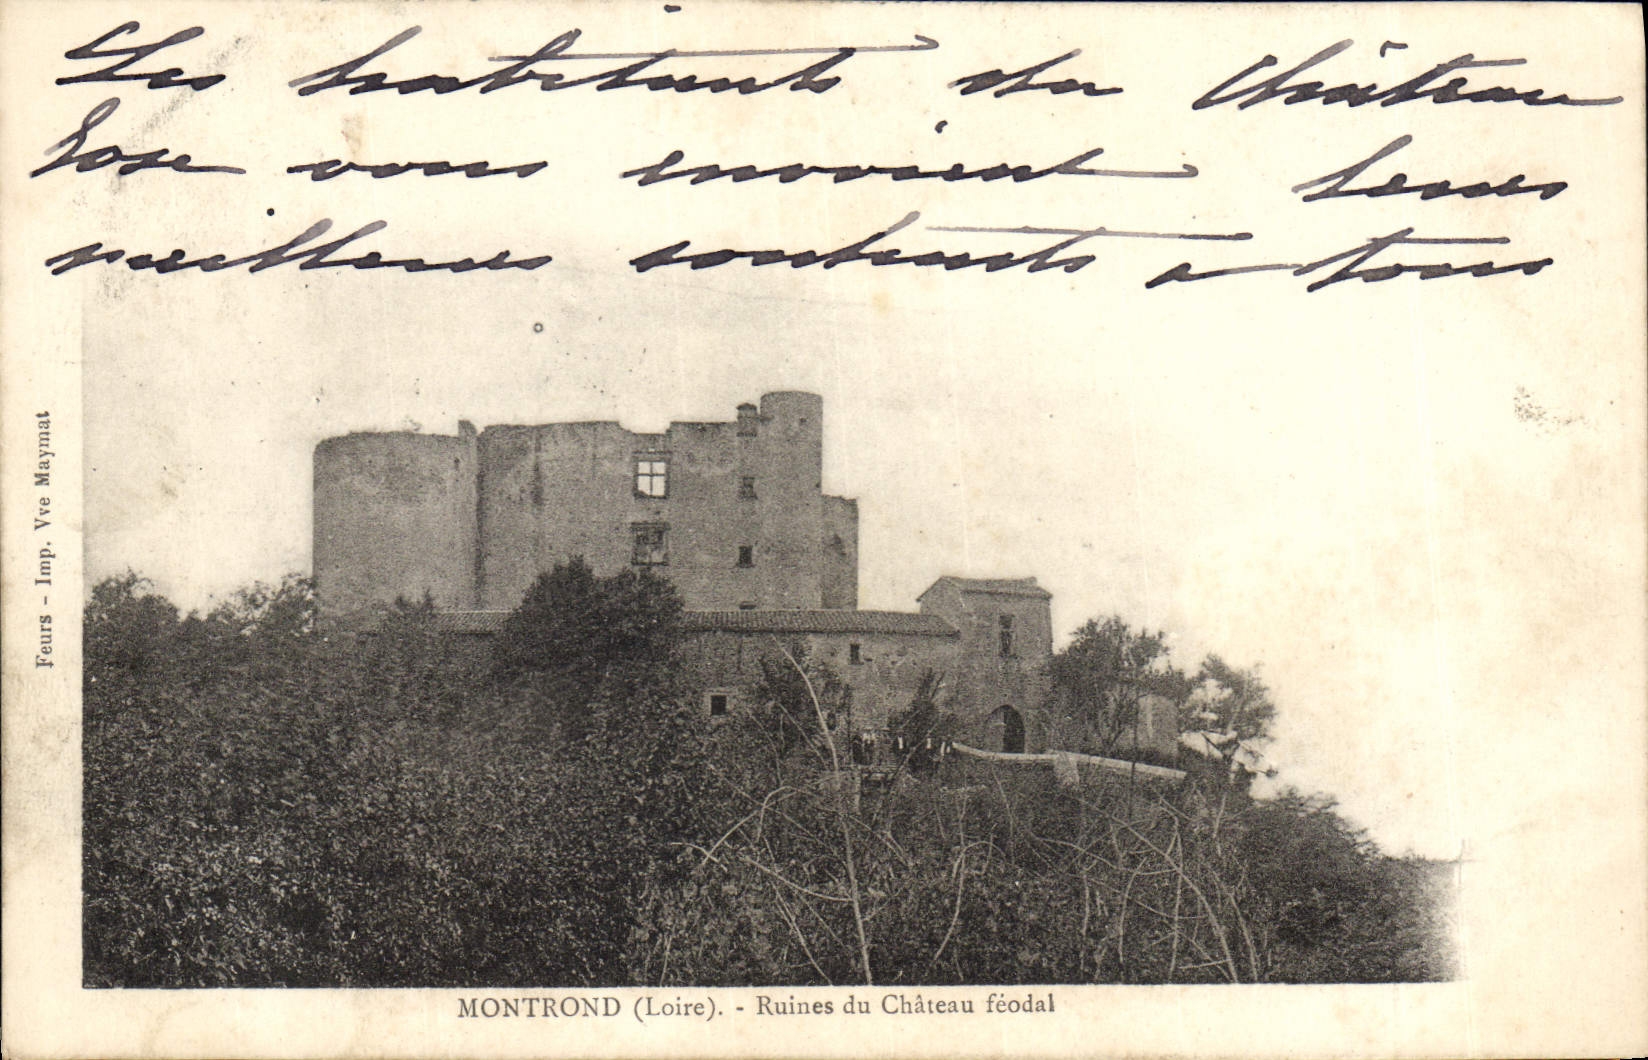 Les habitants du Château
Rose vous envoient leurs
meilleurs souhaits a tous
Feurs - Imp. Vve Maymat
MONTROND (Loire). - Ruines du Château féodal